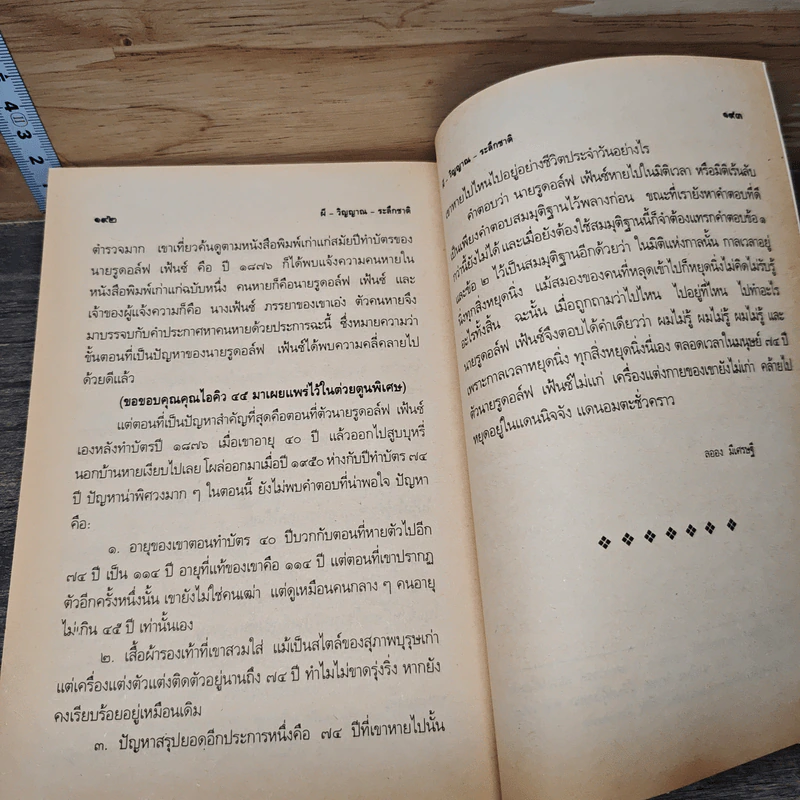 ๑๙๒
ผี - วิญญาณ - ระลึกชาติ
ตำรวจมาก เขาเที่ยวค้นดูตามหนังสือพิมพ์เก่าแก่สมัยปีทำบัตรของ
นายรูดอล์ฟ เฟ้นซ์ คือ ปี ๑๘๗๖ ก็ได้พบแจ้งความคนหายใน
หนังสือพิมพ์เก่าแก่ฉบับหนึ่ง คนหายก็คือนายรูดอล์ฟ เฟ้นซ์ และ
เจ้าของผู้แจ้งความก็คือ นางเฟ้นซ์ ภรรยาของเขาเอง ตัวคนหายจึง
มาบรรจบกับคำประกาศหาคนหายด้วยประการฉะนี้ ซึ่งหมายความว่า
ขั้นตอนที่เป็นปัญหาของนายรูดอล์ฟ เฟ้นซ์ได้พบความคลี่คลายไป
ด้วยดีแล้ว
(ขอขอบคุณคุณไอคิว ๔๕ มาเผยแพร่ไว้ในต่วยตูนพิเศษ)
แต่ตอนที่เป็นปัญหาสำคัญที่สุดคือตอนที่ตัวนายรูดอล์ฟ เฟ้นซ์
เองหลังทำบัตรปี ๑๘๗๖ เมื่อเขาอายุ ๔๐ ปี แล้วออกไปสูบบุหรี่
นอกบ้านหายเงียบไปเลย โผล่ออกมาเมื่อปี ๑๙๕๐ ห่างกับปีทำบัตร ๗๔
ปี ปัญหาน่าพิศวงมาก ๆ ในตอนนี้ ยังไม่พบคำตอบที่น่าพอใจ ปัญหา
คือ:
๑. อายุของเขาตอนทำบัตร ๔๐ ปีบวกกับตอนที่หายตัวไปอีก
๗๔ ปี เป็น ๑๑๔ ปี อายุที่แท้ของเขาคือ ๑๑๔ ปี แต่ตอนที่เขาปรากฏ
ตัวอีกครั้งหนึ่งนั้น เขายังไม่ใช่คนเฒ่า แต่ดูเหมือนคนกลาง ๆ คนอายุ
ไม่เกิน ๔๕ ปี เท่านั้นเอง
๒. เสื้อผ้ารองเท้าที่เขาสวมใส่ แม้เป็นสไตล์ของสุภาพบุรุษเก่า
แต่เครื่องแต่งตัวแต่งติดตัวอยู่นานถึง ๗๔ ปี ทำไมไม่ขาดรุ่งริ่ง หากยัง
คงเรียบร้อยอยู่เหมือนเดิม
๓. ปัญหาสรุปยอดอีกประการหนึ่งคือ ๗๔ ปีที่เขาหายไปนั้น
ผี - วิญญาณ - ระลึกชาติ
๑๙๓
เขาหายไปไหนไปอยู่อย่างชีวิตประจำวันอย่างไร
คำตอบว่า นายรูดอล์ฟ เฟ้นซ์หายไปในมิติเวลา หรือมิติเร้นลับ
เป็นเพียงคำตอบสมมุติฐานไว้พลางก่อน ขณะที่เรายังหาคำตอบที่ดี
กว่านี้ยังไม่ได้ และเมื่อยังต้องใช้สมมุติฐานนี้ก็จำต้องแทรกคำตอบข้อ ๑
และข้อ ๒ ไว้เป็นสมมุติฐานอีกด้วยว่า ในมิติแห่งกาลนั้น กาลเวลาอยู่
นิ่งทุกสิ่งหยุดนิ่ง แม้สมองของคนที่หลุดเข้าไปก็หยุดนิ่งไม่คิดไม่รับรู้
อะไรทั้งสิ้น ฉะนั้น เมื่อถูกถามว่าไปไหน ไปอยู่ที่ไหน ไปทำอะไร
นายรูดอล์ฟ เฟ้นซ์จึงตอบได้คำเดียวว่า ผมไม่รู้ ผมไม่รู้ ผมไม่รู้ และ
เพราะกาลเวลาหยุดนิ่ง ทุกสิ่งหยุดนิ่งนี่เอง ตลอดเวลาในมนุษย์ ๗๔ ปี
ตัวนายรูดอล์ฟ เฟ้นซ์ไม่แก่ เครื่องแต่งกายของเขายังไม่เก่า คล้ายไป
หยุดอยู่ในแดนนิจจัง แดนอมตะชั่วคราว
ลออง มีเศรษฐี
4 3 2